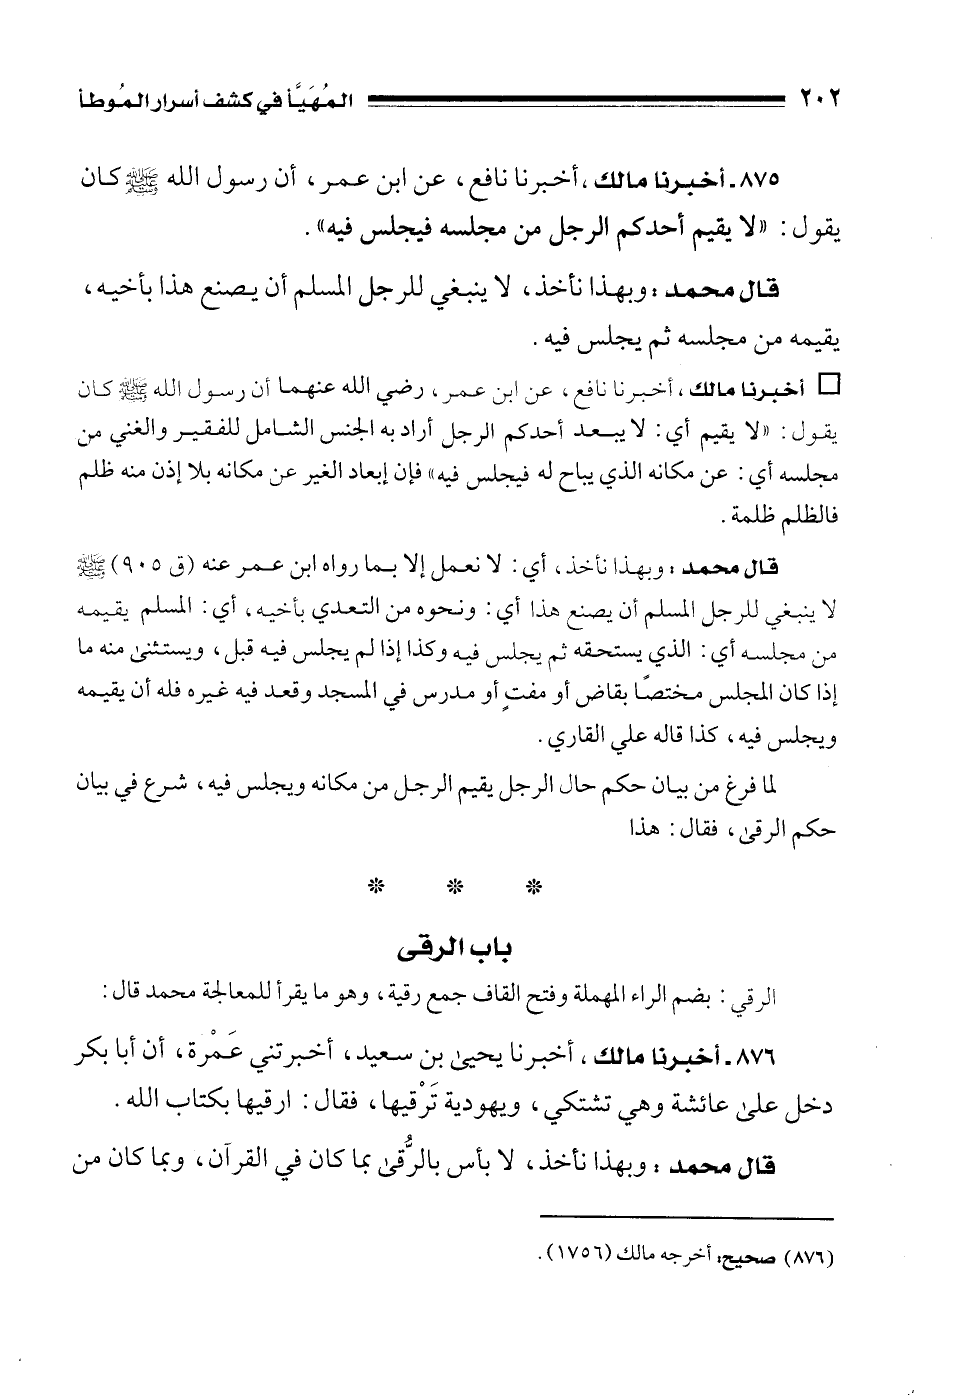 ٢٠٢ المُهَيَّأ في كشف أسرار المُوطأ
٨٧٥ـ أخبرنا مالك، أخبرنا نافع، عن ابن عمر، أن رسول الله ﷺ كان
يقول: «لا يقيم أحدكم الرجل من مجلسه فيجلس فيه».
قال محمد: وبهذا نأخذ، لا ينبغي للرجل المسلم أن يصنع هذا بأخيه،
يقيمه من مجلسه ثم يجلس فيه.
□ أخبرنا مالك، أخبرنا نافع، عن ابن عمر، رضي الله عنهما أن رسول الله ﷺ كان
يقول: «لا يقيم أي: لا يبعد أحدكم الرجل أراد به الجنس الشامل للفقير والغني من
مجلسه أي: عن مكانه الذي يباح له فيجلس فيه» فإن إبعاد الغير عن مكانه بلا إذن منه ظلم
فالظلم ظلمة.
قال محمد: وبهذا نأخذ، أي: لا نعمل إلا بما رواه ابن عمر عنه (ق ٩٠٥) ﷺ
لا ينبغي للرجل المسلم أن يصنع هذا أي: ونحوه من التعدي بأخيه، أي: المسلم يقيمه
من مجلسه أي: الذي يستحقه ثم يجلس فيه وكذا إذا لم يجلس فيه قبل، ويستثنىٰ منه ما
إذا كان المجلس مختصًا بقاض أو مفتٍ أو مدرس في المسجد وقعد فيه غيره فله أن يقيمه
ويجلس فيه، كذا قاله علي القاري.
لما فرغ من بيان حكم حال الرجل يقيم الرجل من مكانه ويجلس فيه، شرع في بيان
حكم الرقىٰ، فقال: هذا
* * *
باب الرقى
الرقي: بضم الراء المهملة وفتح القاف جمع رقية، وهو ما يقرأ للمعالجة محمد قال:
٨٧٦ـ أخبرنا مالك، أخبرنا يحيىٰ بن سعيد، أخبرتني عَمْرة، أن أبا بكر
دخل علىٰ عائشة وهي تشتكي، ويهودية تَرْقيها، فقال: ارقيها بكتاب الله.
قال محمد: وبهذا نأخذ، لا بأس بالرُّقىٰ بما كان في القرآن، وبما كان من
(٨٧٦) صحيح: أخرجه مالك (١٧٥٦).